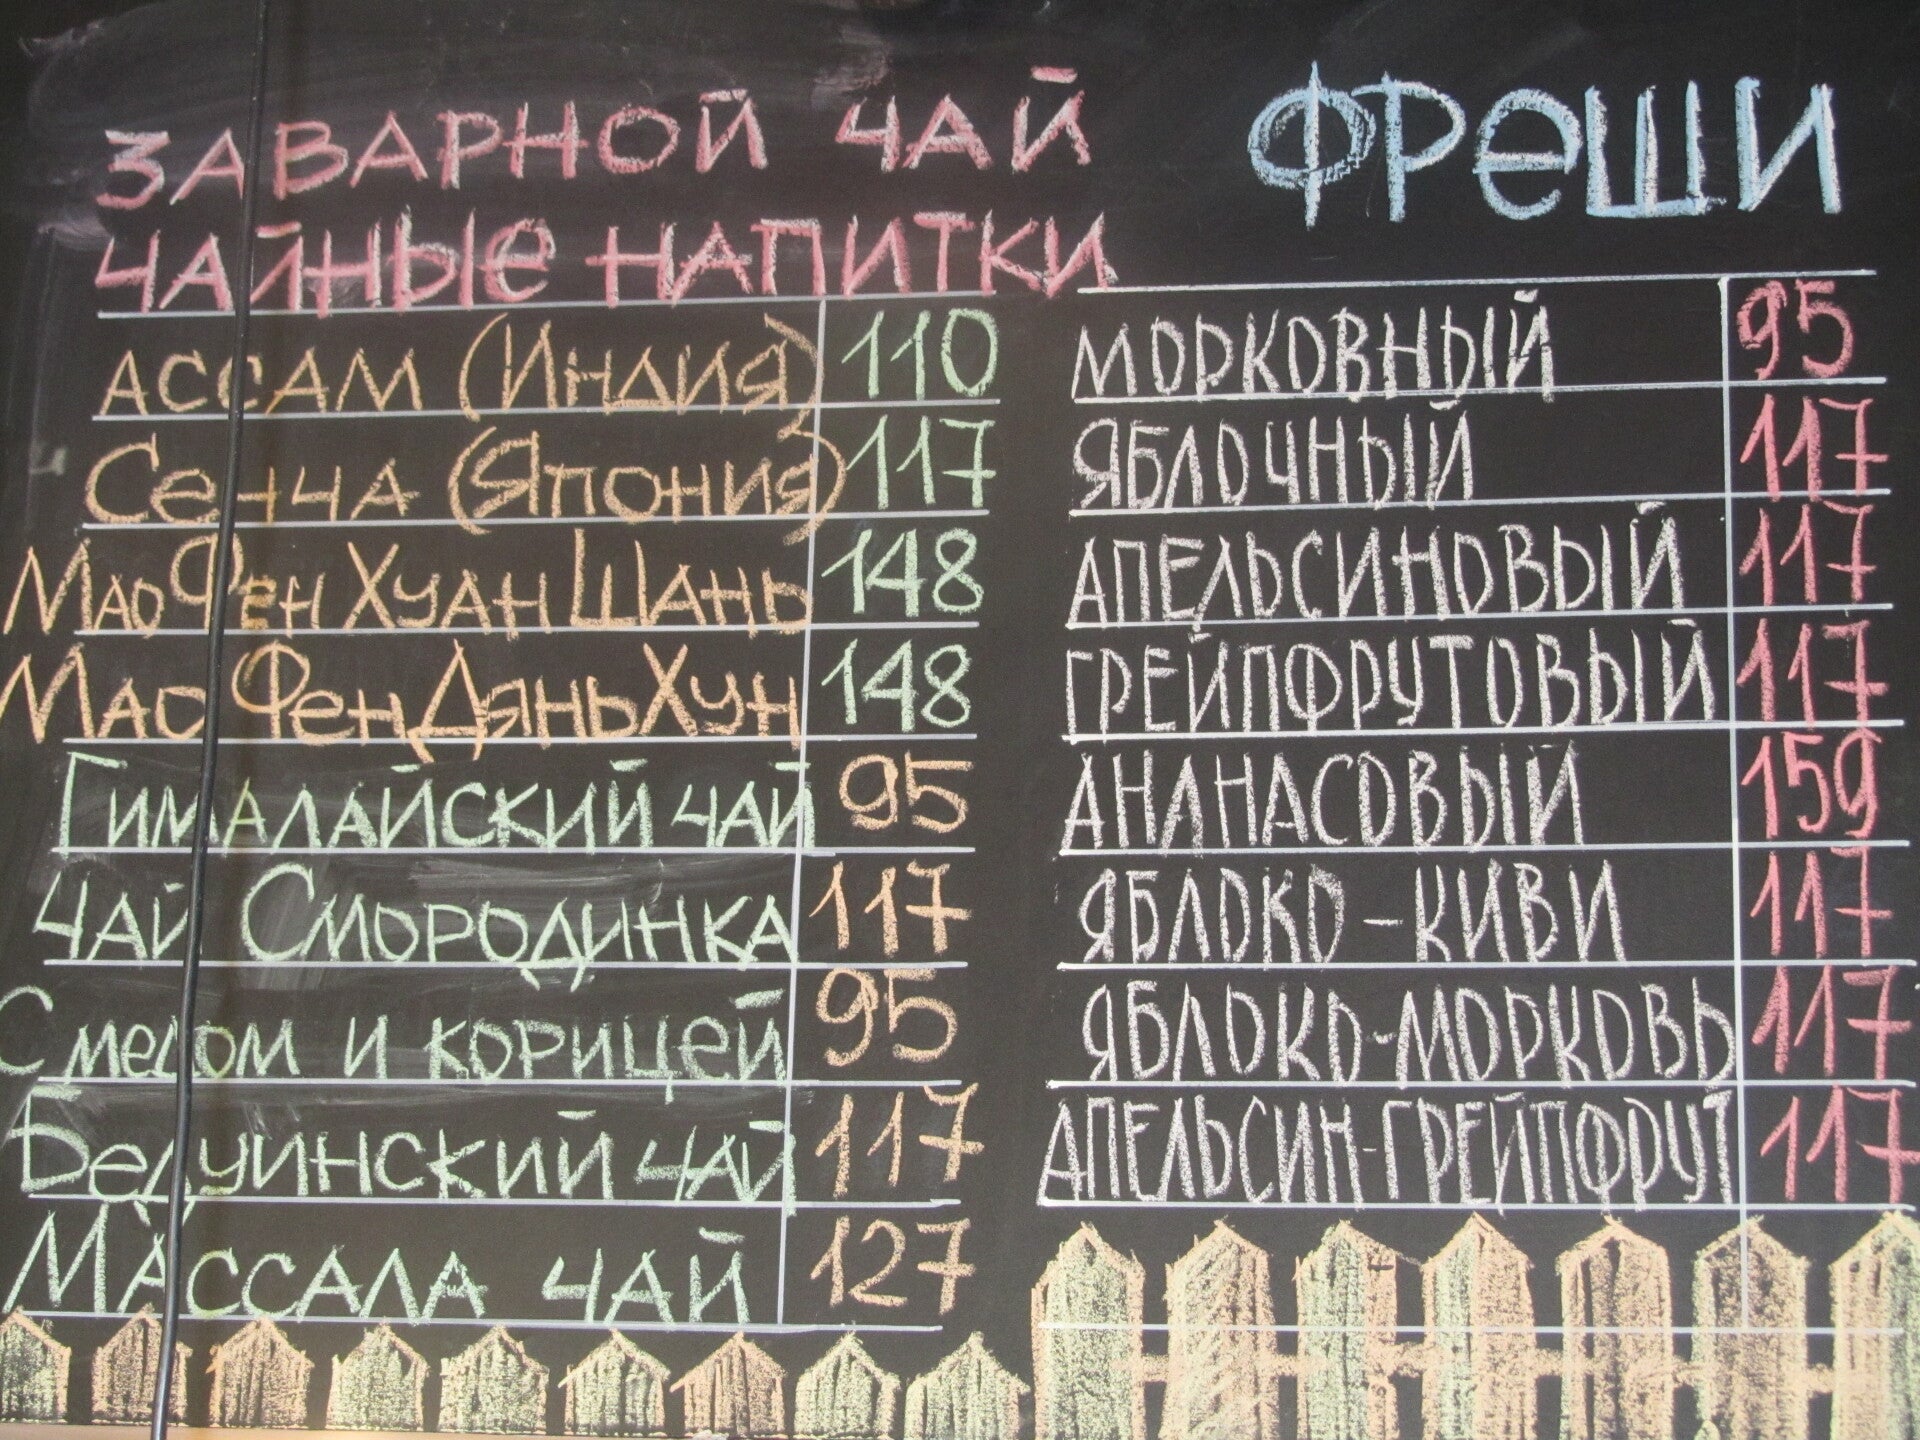 ЗАВАРНОЙ ЧАЙ
ЧАЙНЫЕ НАПИТКИ
АССАМ (ИНДИЯ) 110
СЕНЧА (ЯПОНИЯ) 117
МАО ФЕН ХУАН ШАНЬ 148
МАО ФЕН ДЯНЬ ХУН 148
ГИМАЛАЙСКИЙ ЧАЙ 95
ЧАЙ СМОРОДИНКА 117
С МЕДОМ И КОРИЦЕЙ 95
БЕДУИНСКИЙ ЧАЙ 117
МАССАЛА ЧАЙ 127
ФРЕШИ
МОРКОВНЫЙ 95
ЯБЛОЧНЫЙ 117
АПЕЛЬСИНОВЫЙ 117
ГРЕЙПФРУТОВЫЙ 117
АНАНАСОВЫЙ 159
ЯБЛОКО-КИВИ 117
ЯБЛОКО-МОРКОВЬ 117
АПЕЛЬСИН-ГРЕЙПФРУТ 117